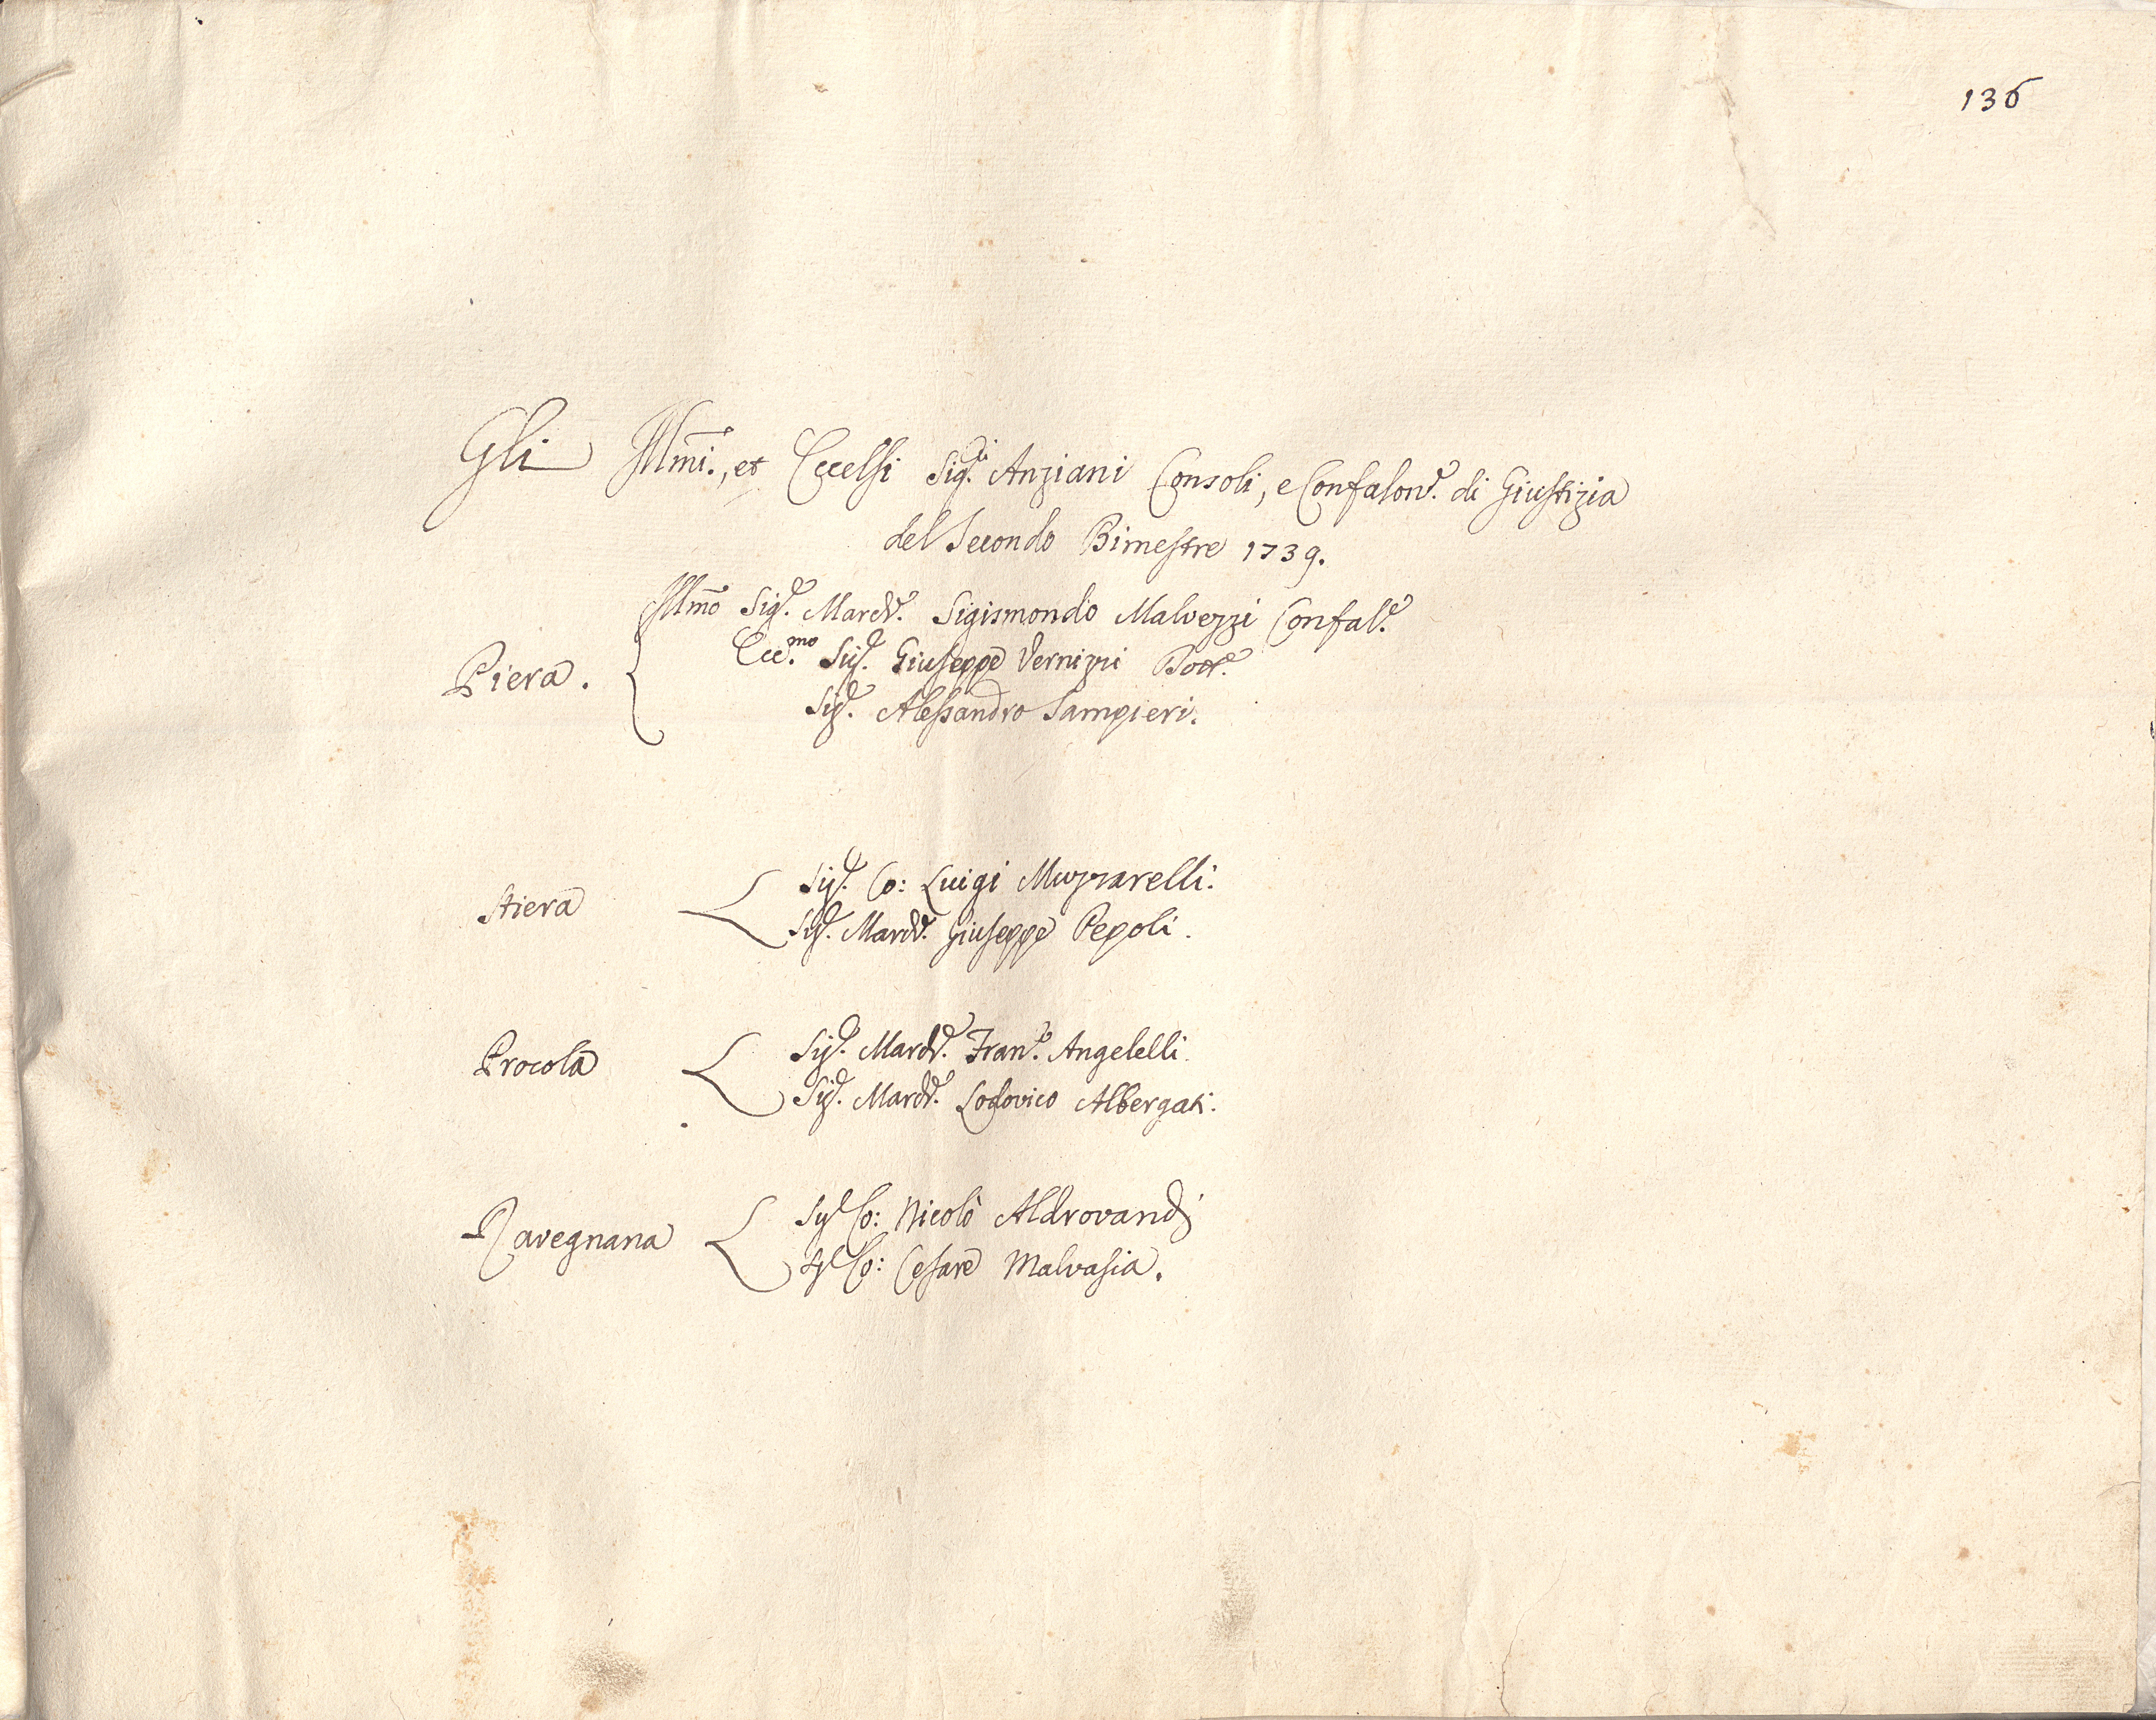 136
Gli Illmi., et Eccelsi Sig.ri Anziani Consoli, e Confalonre. di Giustizia
del Secondo Bimestre 1739.
Illmo Sigre. March.e Sigismondo Malvezzi Confal.e
Piera. Ecc.mo Sigre. Giuseppe Vernizzi Dott.e
Sigre. Alessandro Sampieri.
Sigre. Co: Luigi Muzzarelli.
Stiera
Sigre. March.e Giuseppe Pepoli.
Sigre. March.e Fran.co Angelelli.
Procola
Sigre. March.e Lodovico Albergati.
Sigre Co: Nicolò Aldrovandi
Ravegnana
Sigre Co: Cesare Malvasia.